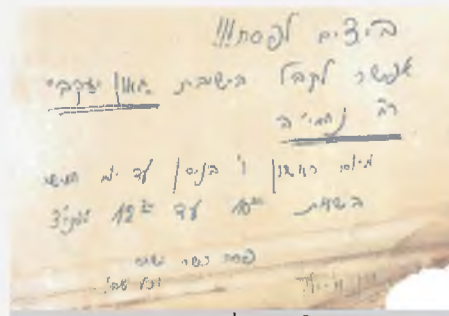 ביצים לפסח!!!
אפשר לקבל בישיבת גאון יעקב
רח' נחמי'ה
מיום ראשון ו' בניסן עד יום חמישי
בשעות 10⁰⁰ עד 12³⁰
פסח כשר ושמח